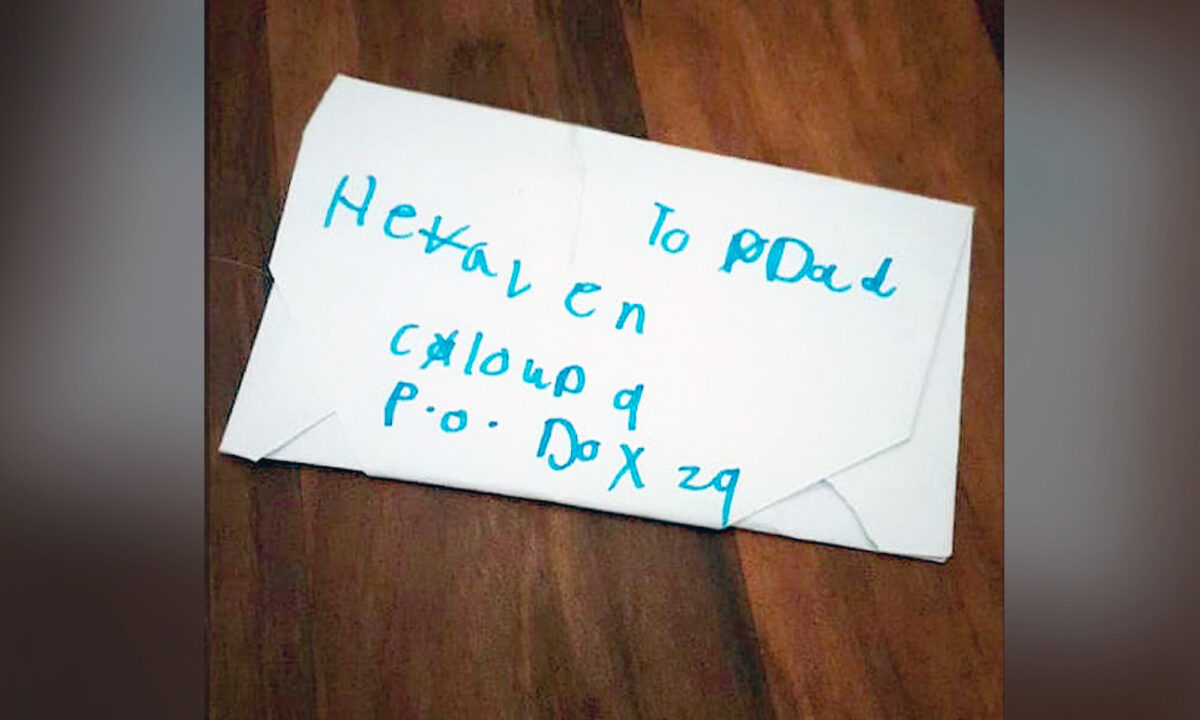 To Dad
Hevalen
cloup 9
P.O. Dox 29